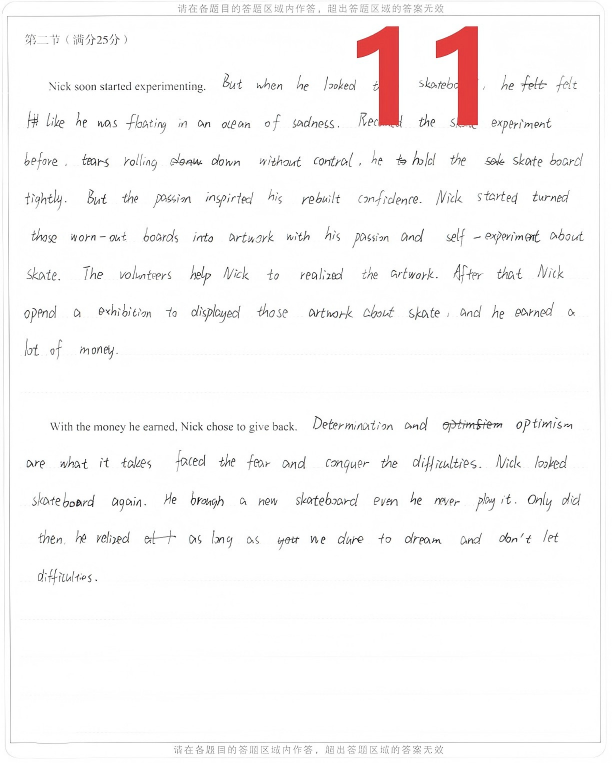 请在各题目的答题区域内作答，超出答题区域的答案无效
第二节（满分25分）
11
Nick soon started experimenting. But when he looked skateboard, he felt felt
like he was floating in an ocean of sadness. the experiment
before, tears rolling down without contral, he to hold the skate board
tightly. But the passion inspirted his rebuilt confidence. Nick started turned
those worn-out boards into artwork with his passion and self-experiment about
skate. The volunteers help Nick to realized the artwork. After that Nick
opend a exhibition to displayed those artwork about skate, and he earned a
lot of money.
With the money he earned, Nick chose to give back. Determination and optimsiem optimism
are what it takes faced the fear and conquer the difficulties. Nick looked
skateboard again. He brough a new skateboard even he never play it. Only did
then, he relized as long as you we dure to dream and don't let
difficulties.
请在各题目的答题区域内作答，超出答题区域的答案无效